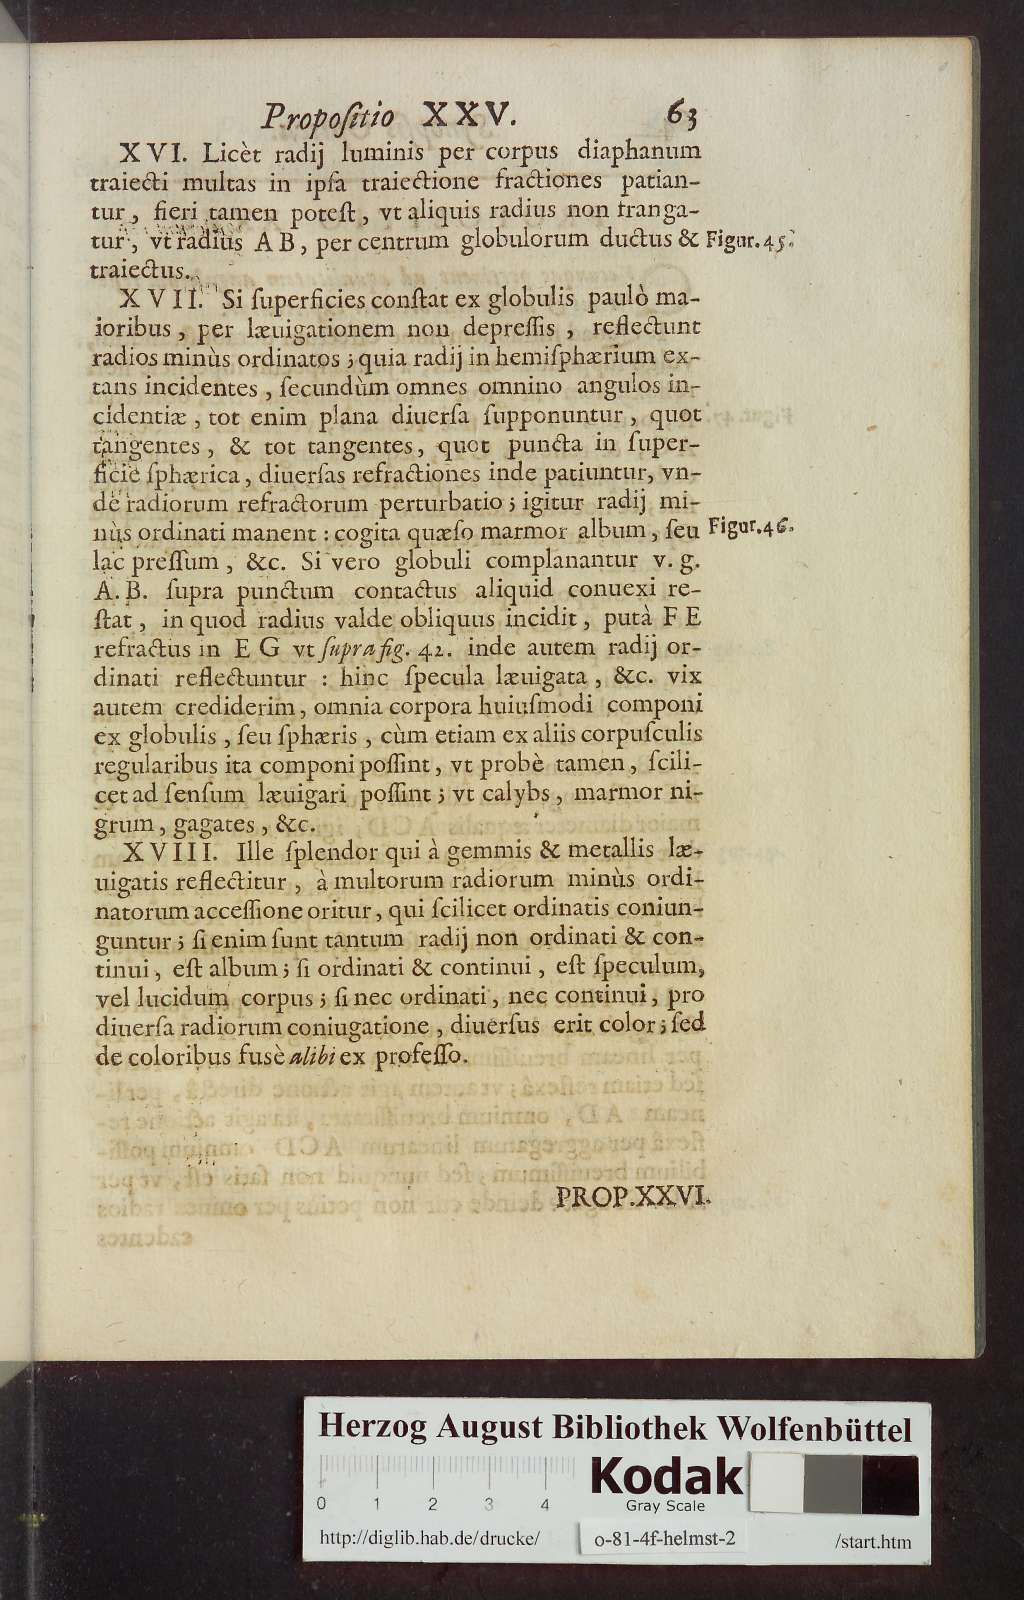 Propoſitio XXV. 63
XVI. Licèt radij luminis per corpus diaphanum
traiecti multas in ipſa traiectione fractiones patian-
tur, fieri tamen poteſt, vt aliquis radius non franga-
tur, vt radius A B, per centrum globulorum ductus & Figur. 45.
traiectus.
XVII. Si ſuperficies conſtat ex globulis paulò ma-
ioribus, per læuigationem non depreſſis, reflectunt
radios minùs ordinatos; quia radij in hemiſphærium ex-
tans incidentes, ſecundùm omnes omnino angulos in-
cidentiæ, tot enim plana diuerſa ſupponuntur, quot
tangentes, & tot tangentes, quot puncta in ſuper-
ficie ſphærica, diuerſas refractiones inde patiuntur, vn-
de radiorum refractorum perturbatio; igitur radij mi-
nùs ordinati manent: cogita quæſo marmor album, ſeu Figur. 46.
lac preſſum, &c. Si vero globuli complanantur v. g.
A. B. ſupra punctum contactus aliquid conuexi re-
ſtat, in quod radius valde obliquus incidit, putà F E
refractus in E G vt ſupra fig. 42. inde autem radij or-
dinati reflectuntur: hinc ſpecula læuigata, &c. vix
autem crediderim, omnia corpora huiuſmodi componi
ex globulis, ſeu ſphæris, cùm etiam ex aliis corpuſculis
regularibus ita componi poſſint, vt probè tamen, ſcili-
cet ad ſenſum læuigari poſſint; vt calybs, marmor ni-
grum, gagates, &c.
XVIII. Ille ſplendor qui à gemmis & metallis læ-
uigatis reflectitur, à multorum radiorum minùs ordi-
natorum acceſſione oritur, qui ſcilicet ordinatis coniun-
guntur; ſi enim ſunt tantum radij non ordinati & con-
tinui, eſt album; ſi ordinati & continui, eſt ſpeculum,
vel lucidum corpus; ſi nec ordinati, nec continui, pro
diuerſa radiorum coniugatione, diuerſus erit color; ſed
de coloribus fusè alibi ex profeſſo.
PROP. XXVI.
Herzog August Bibliothek Wolfenbüttel
Kodak
Gray Scale
0 1 2 3 4
http://diglib.hab.de/drucke/ o-81-4f-helmst-2 /start.htm